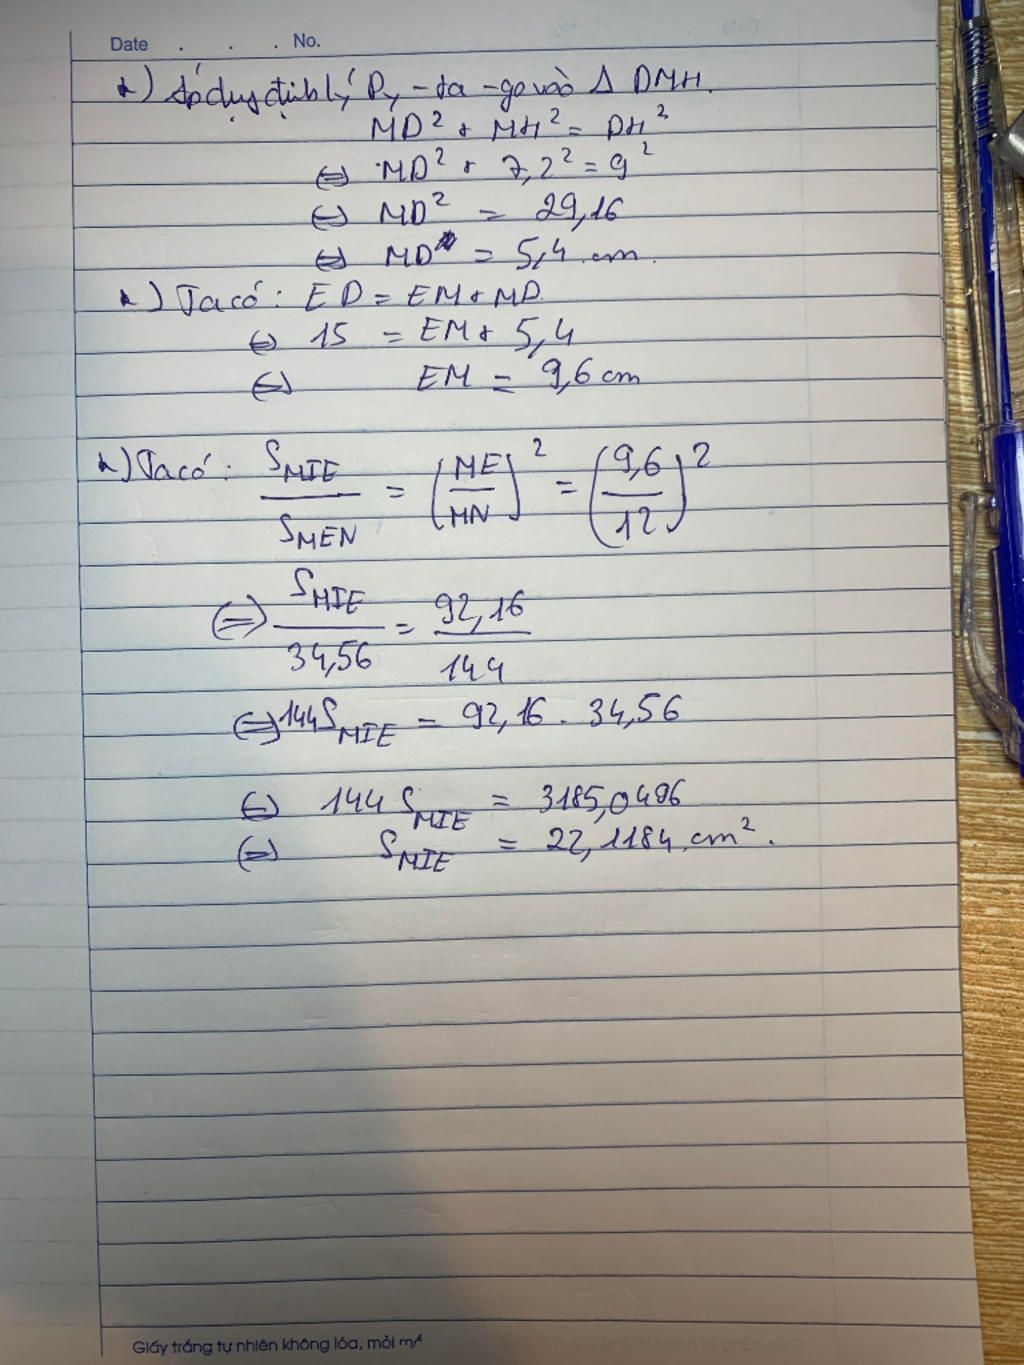 Date . . . No.
*) Áp dụng định lý Py-ta-go vào Δ DMH.
MD² + MH² = DH²
⇔ MD² + 7,2² = 9²
⇔ MD² = 29,16
⇔ MD = 5,4 cm.
*) Ta có: ED = EM + MD.
⇔ 15 = EM + 5,4
⇔ EM = 9,6 cm
*) Ta có: S_MIE / S_MEN = (ME / MN)² = (9,6 / 12)²
⇔ S_MIE / 34,56 = 92,16 / 144
⇔ 144 S_MIE = 92,16 . 34,56
⇔ 144 S_MIE = 3185,0496
⇔ S_MIE = 22,1184 cm².
Giấy trắng tự nhiên không lóa, mỏi mắt